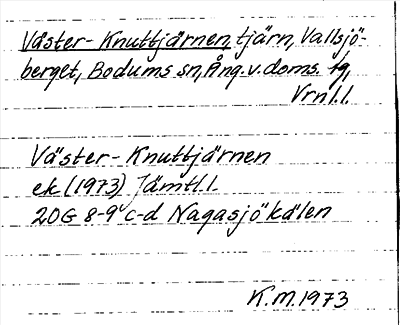 Väster-Knuttjärnen, tjärn, Vallsjö-
berget, Bodums sn, Ång. v. doms. tg,
Vrnl. l.
Väster-Knuttjärnen
ek (1973) Jämtl. l.
20G 8-9 c-d Nagasjökälen
K.M. 1973